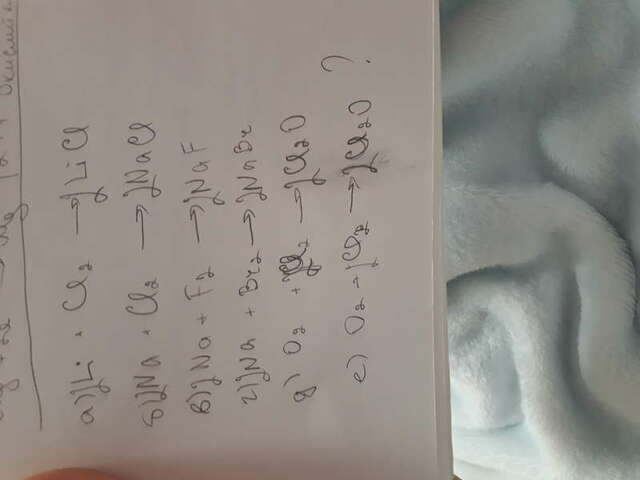 Окислит
а) 2Li + Cl₂ → 2LiCl
б) 2Na + Cl₂ → 2NaCl
в) 2Na + F₂ → 2NaF
г) 2Na + Br₂ → 2NaBr
д) O₂ + 2Cl₂ → 2Cl₂O
е) O₂ + 2Cl₂ → 2Cl₂O ?